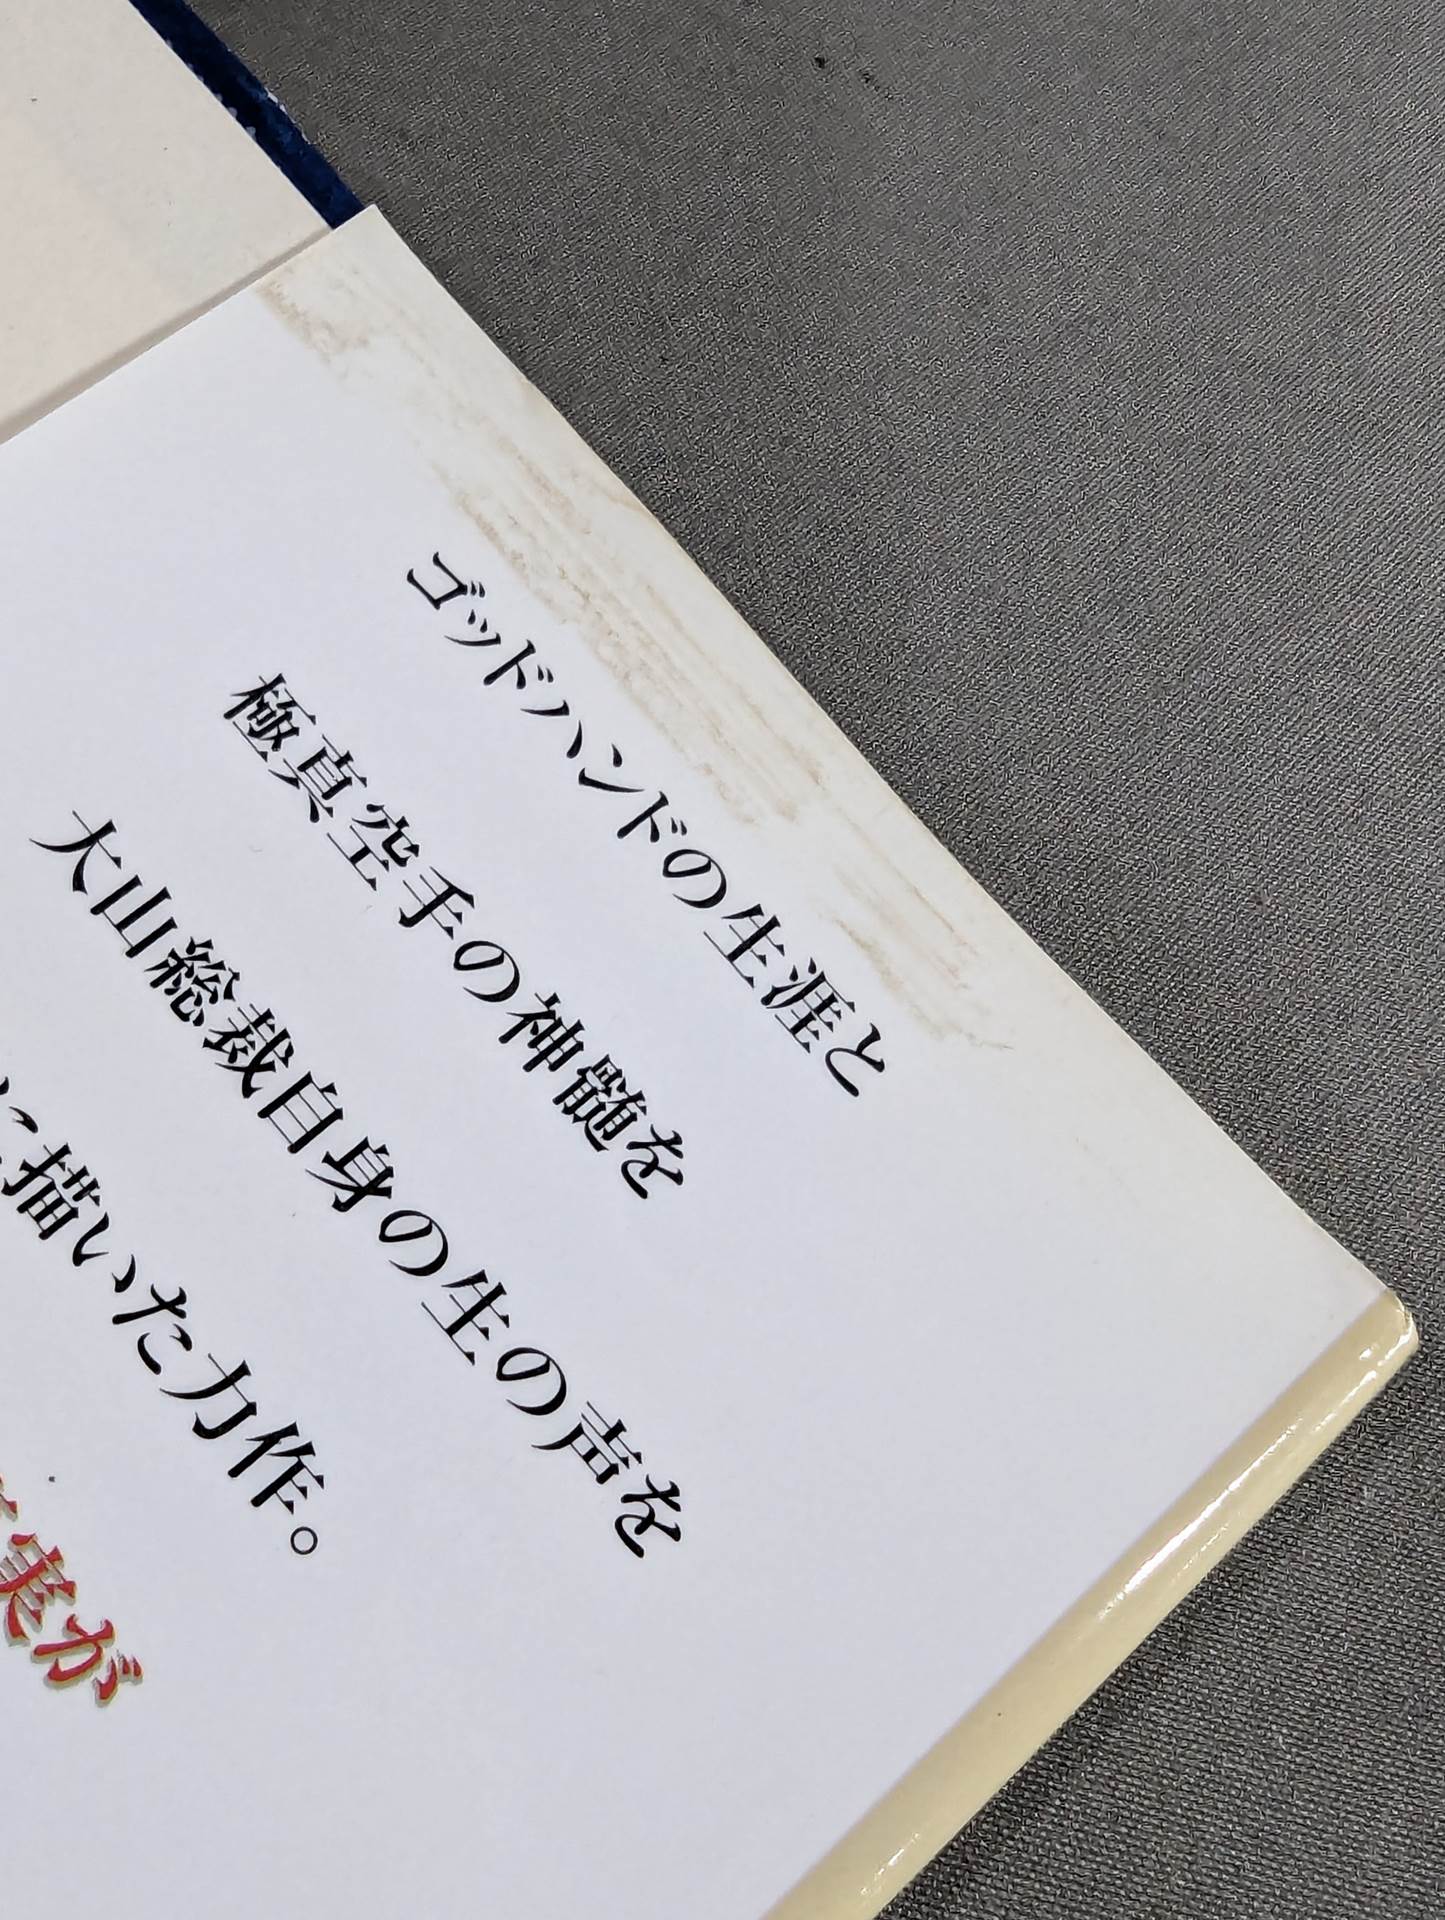 ゴッドハンドの生涯と
極真空手の神髄を
大山総裁自身の生の声を
に描いた力作。
実が